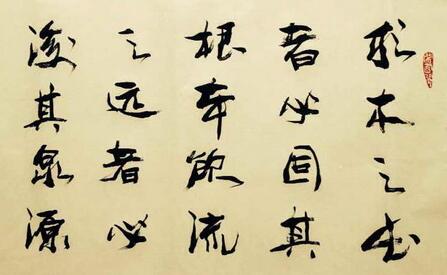 求木之长
者必固其
根本欲流
之远者必
浚其泉源